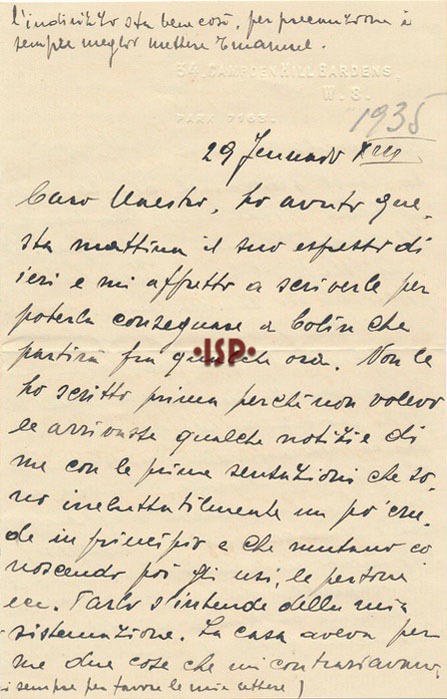 l'indirizzo sta bene così, per precauzione è
sempre meglio mettere Emanuel.
34, CAMPDEN HILL GARDENS,
W. 8.
PARK 7163.
1935
29 Gennaio XIII
Caro Maestro, ho avuto que-
sta mattina il suo espresso di
ieri e mi affretto a scriverle per
poterla consegnare a Colin che
partirà fra qualche ora. Non le
•ISP•
ho scritto prima perché non volevo
le arrivasse qualche notizie di
me con le prime sensazioni che so-
no ineluttabilmente un po' cru-
de in principio e che mutano co-
noscendo poi gli usi, le persone
ecc. Parlo s'intende della mia
sistemazione. La casa aveva per
me due cose che mi contrariavano,
si sempre per favore le mie lettere)